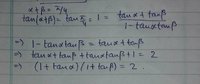 α+β = π/4
tan(α+β) = tan π/4 = 1 = tanα + tanβ / 1 - tanα tanβ
⇒ 1 - tanα tanβ = tanα + tanβ
⇒ tanα + tanβ + tanα tanβ + 1 = 2
⇒ (1 + tanα)(1 + tanβ) = 2.